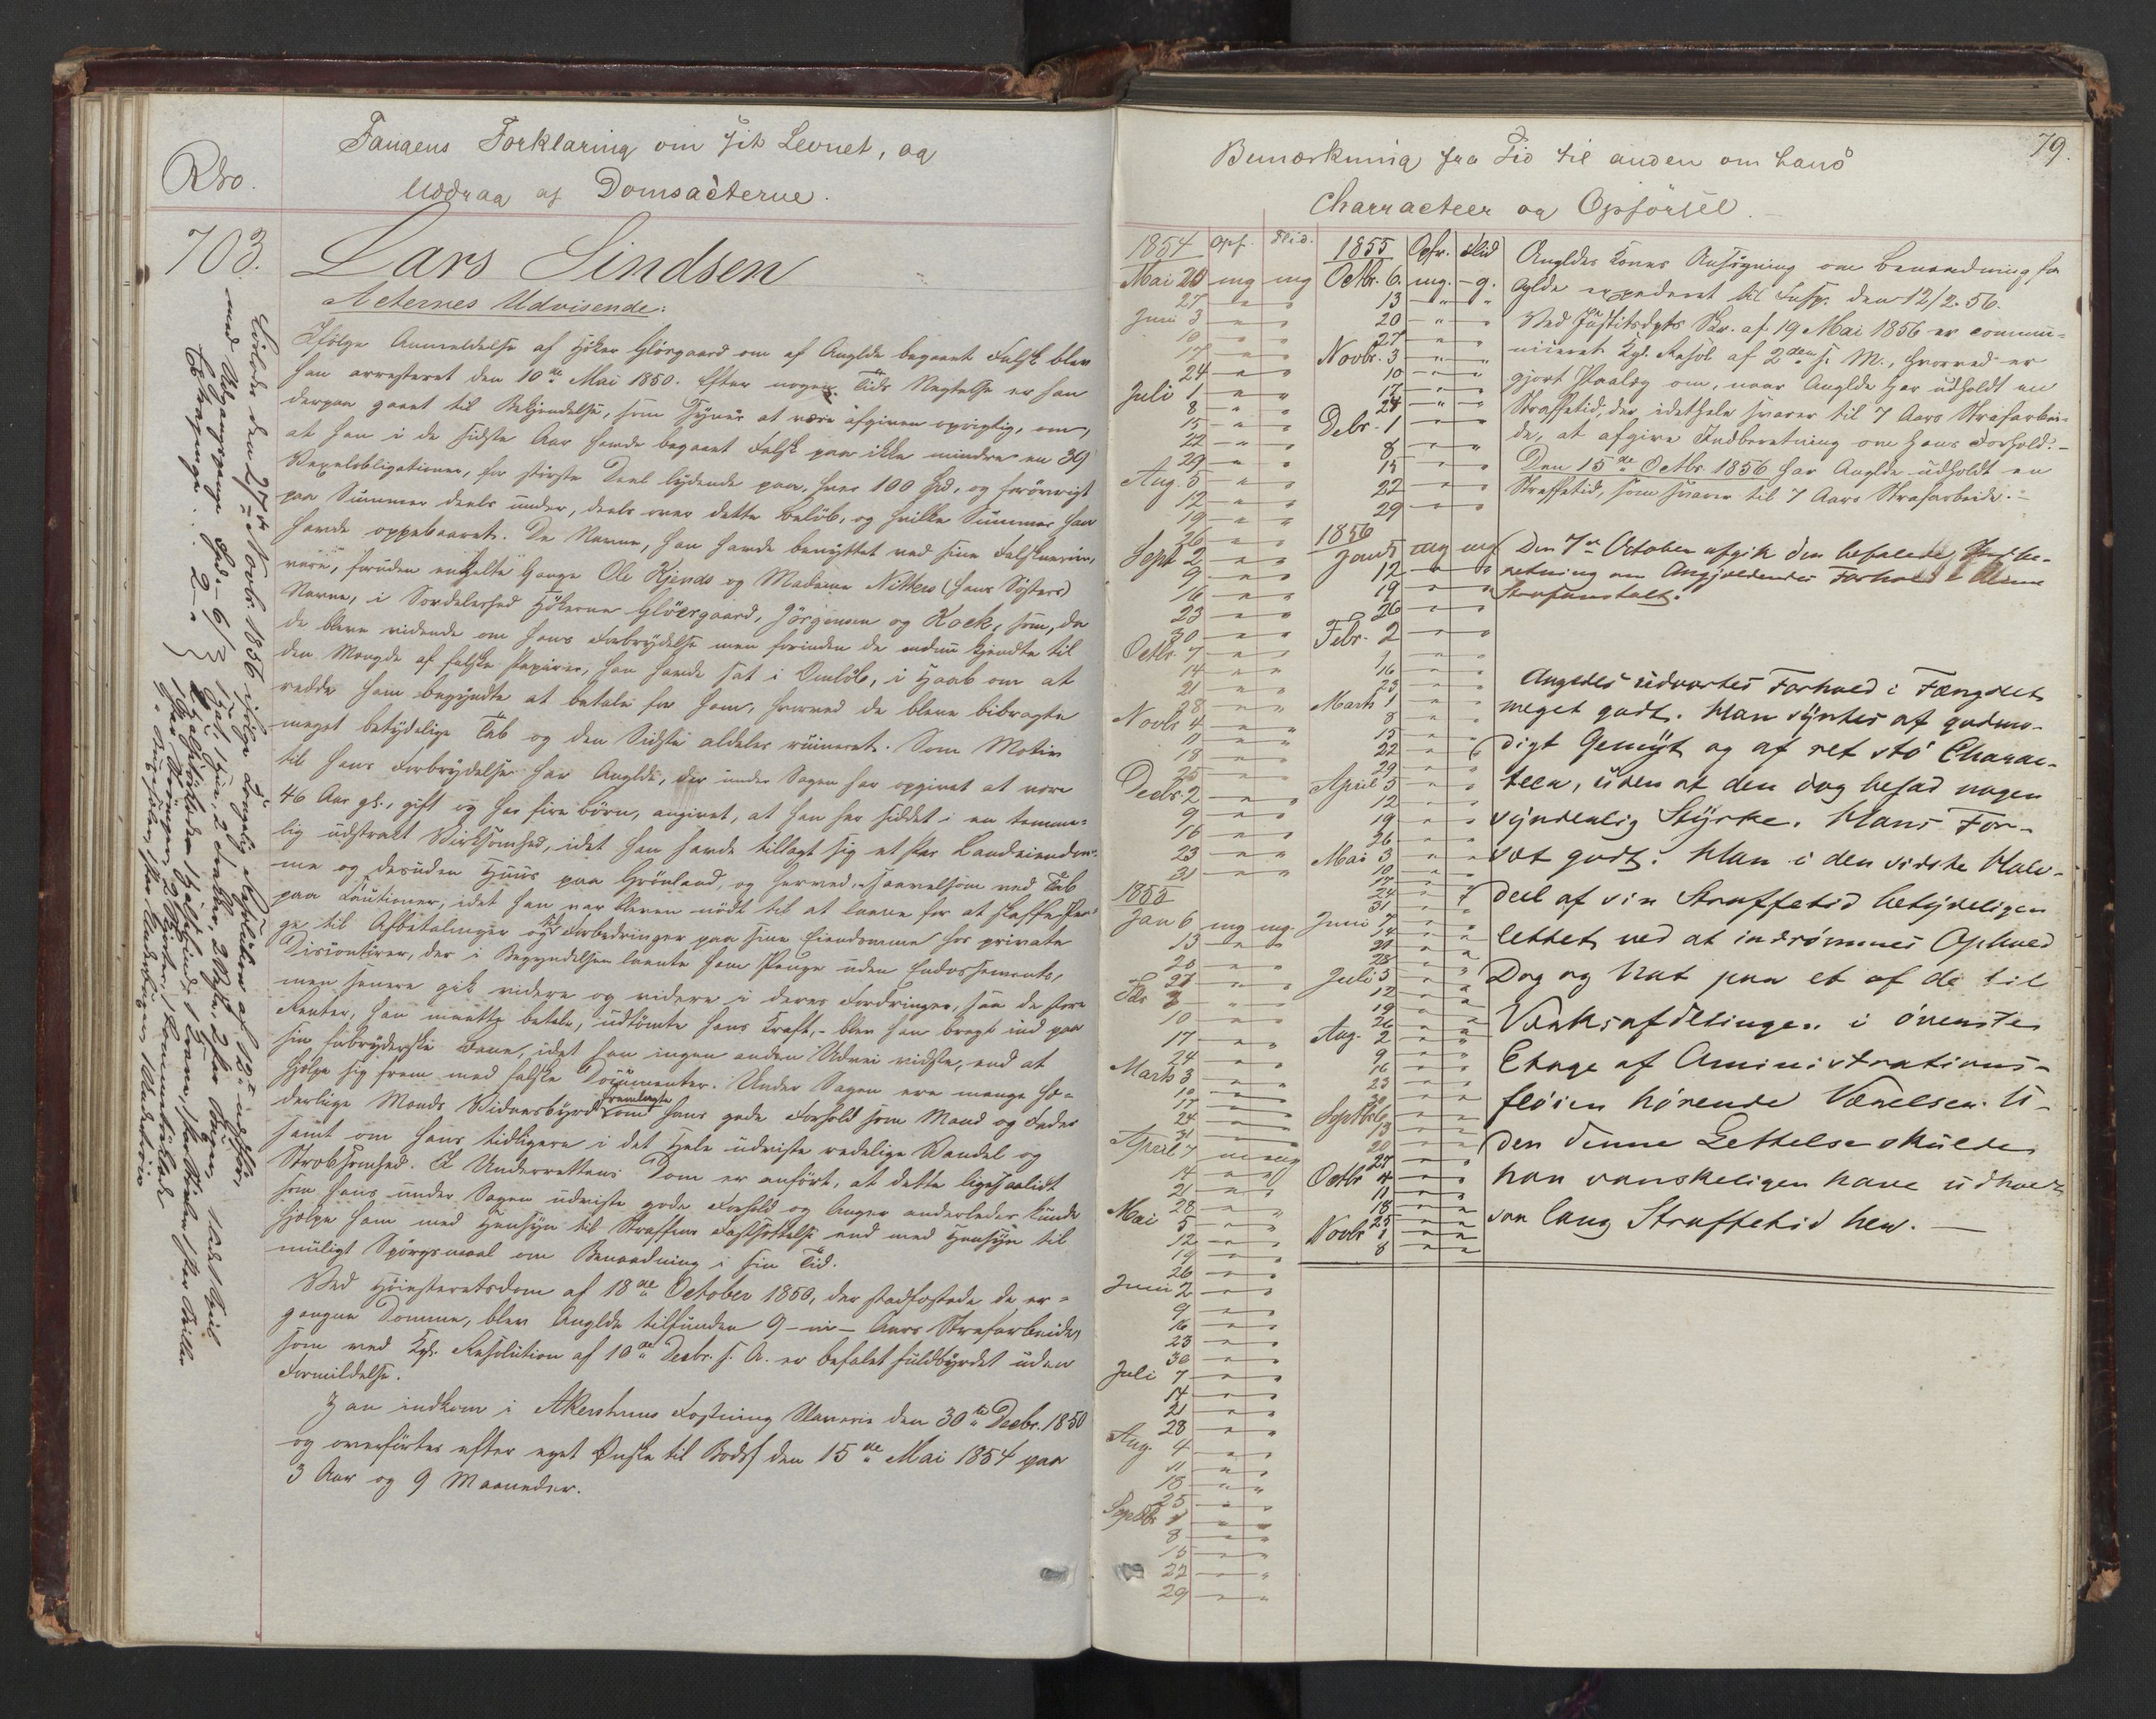 Fangens Forklaring om sit Levnet, og
Uddrag af Domsacterne.
No.
703.
Lars Lindsen
Acternes Udvisende:
Ifølge Anmeldelse af Høker Glørgaard om af Anglde begaaet Falsk blev
han arresteret den 10de Mai 1850. Efter nogen Tids Negtelse er han
derpaa gaaet til Bekjendelse, som synes at være afgiven oprigtig, om,
at han i de sidste Aar havde begaaet Falsk paa ikke mindre en 39
Vexelobligationer, for største Deel lydende paa, hver 100 Spd, og forøvrigt
paa Summer deels under, deels over dette Beløb, og hvilke Summer han
havde oppebaaret. De Navne, han havde benyttet ved sine Falsknerier,
vare, foruden enkelte Gange Ole Kjends og Madame (hans Søsters)
Navne, i Særdeleshed Høkerne Glørgaard, Jørgensen og Kock, som, da
de bleve vidende om hans Forbrydelse men forinden de endnu kjendte til
den Mængde af falske Papirer, han havde sat i Omløb, i Haab om at
redde ham begyndte at betale for ham, hvorved de bleve bibragte
meget betydelige Tab og den Sidste aldeles ruineret. Som Motiv
til hans Forbrydelser har Anglde, der under Sagen har opgivet at være
46 Aar gl., gift og har fire Børn, angivet, at han har siddet i en temme-
lig udstrakt Virksomhed, idet han havde tillagt sig et Par Landeiendom-
me og desuden Huus paa Grønland, og herved, saavelsom ved Tab
paa Cautioner, idet han var bleven nødt til at laane for at skaffe Pen-
ge til Afbetalinger og til Forbedringer paa sine Eiendomme hos private
Discontører, der i Begyndelsen laante ham Penge uden Endossements,
men senere gik videre og videre i deres Fordringer, saa de store
Renter, han maatte betale, udtømte hans Kraft, - blev han bragt ind paa
sin forbryderske Bane, idet han ingen anden Udvei vidste, end at
hjelpe sig frem med falske Documenter. Under Sagen ere mange hæ-
derlige Mænds Vidnesbyrd fremlagte om hans gode Forhold som Mand og Fader
samt om hans tidligere i det Hele udviste redelige Vandel og
Stræbsomhed. I Underrettens Dom er anført, at dette ligesaalidt
som hans under Sagen udviste gode Forhold og Anger anderledes kunde
hjelpe ham med Hensyn til Straffens Fastsættelse end med Hensyn til
muligt Spørgsmaal om Benaadning i sin Tid.
Ved Høiesteretsdom af 18de October 1850, der stadfæstede de er-
gangne Domme, blev Anglde tilfunden 9 - ni - Aars Strafarbeide,
som ved Kgl. Resolution af 10de Decbr. s. A. er befalet fuldbyrdet uden
Formildelse.
Han indkom i Akershuus Fæstning Slaverie den 30te Decbr. 1850
og overførtes efter eget Ønske til Bodsf. den 15de Mai 1854 paa
3 Aar og 9 Maaneder.
Løslod den 27de Novbr. 1856 ifølge Kongelig Resolution af 19de
med Udgangspenge Spd. 6
79.
Bemærkning fra Tid til anden om hans
Characteer og Opførsel.
1854 Opf. Flid. 1855 Opf. Flid
Mai 20 mg mg Octbr. 6. mg. - g.
27 13
Juni 3 20
10 27
17 Novbr. 3
24 10
Juli 1 17
8 24
15 Debr. 1
22 8
29 15
Aug. 5 22
12 29
19
26 1856
Sept 2 Jan 5 mg mg
9 12
16 19
23 26
30 Febr. 2
Octbr. 7
14 16
21 23
28 Marts 1
Novbr 4 8
11 15
18 22
25 29
Decbr. 2 April 5
9 12
16 19
23 26
31 Mai 3
10
1855 17
24
31
Jan 6 mg mg. Juni 7
13 14
20
27 28
Febr 3 Juli 5
10 12
17 19
24 26
Marts 3 Aug. 2
10 9
17 16
24 23
31 30
April 7 mg mg Septbr. 6
14 13
21 20
28 27
Mai 5 Octbr 4
12 11
19 18
26 25
Juni 2 Novbr 1
9 8
16
23
30
Juli 7
14
21
28
Aug. 4
11
18
25
Septbr 1
8
15
22
29
Angldes Kones Ansøgning om Benaadning for
Aglde expederet til Insp. den 12/2. 56.
Ved Justitsdpts Skr. af 19 Mai 1856 er commu-
niceret Kgl. Resol. af 2den s. M., hvorved er
gjort Paalæg om, naar Anglde har udholdt en
Straffetid, der i det hele svarer til 7 Aars Strafarbei-
de, at afgive Indberetning om hans Forhold. -
Den 15de Octbr 1856 har Anglde udholdt en
Straffetid, som svarer til 7 Aars Strafarbeide. -
Den 7de October afgik den befalede Indbe-
retning om Angjældendes Forhold i denne
Strafanstalt.
Angldes udvortes Forhold i Fængslet
meget godt. Han syntes af godmo-
digt Gemyt og af ret stø Charac-
teer, uden at den dog besad nogen
synderlig Styrke. Hans For-
sæt godt. Han i den sidste Halv-
deel af sin Straffetid betydeligen
lettet ved at indrømmes Ophold
Dag og Nat paa et af de til
Vaskeafdelingen i øverste
Etage af Administrations-
fløien hørende Værelser. U-
den denne Lettelse skulde
han vanskeligen have udholdt
saa lang Straffetid her. -